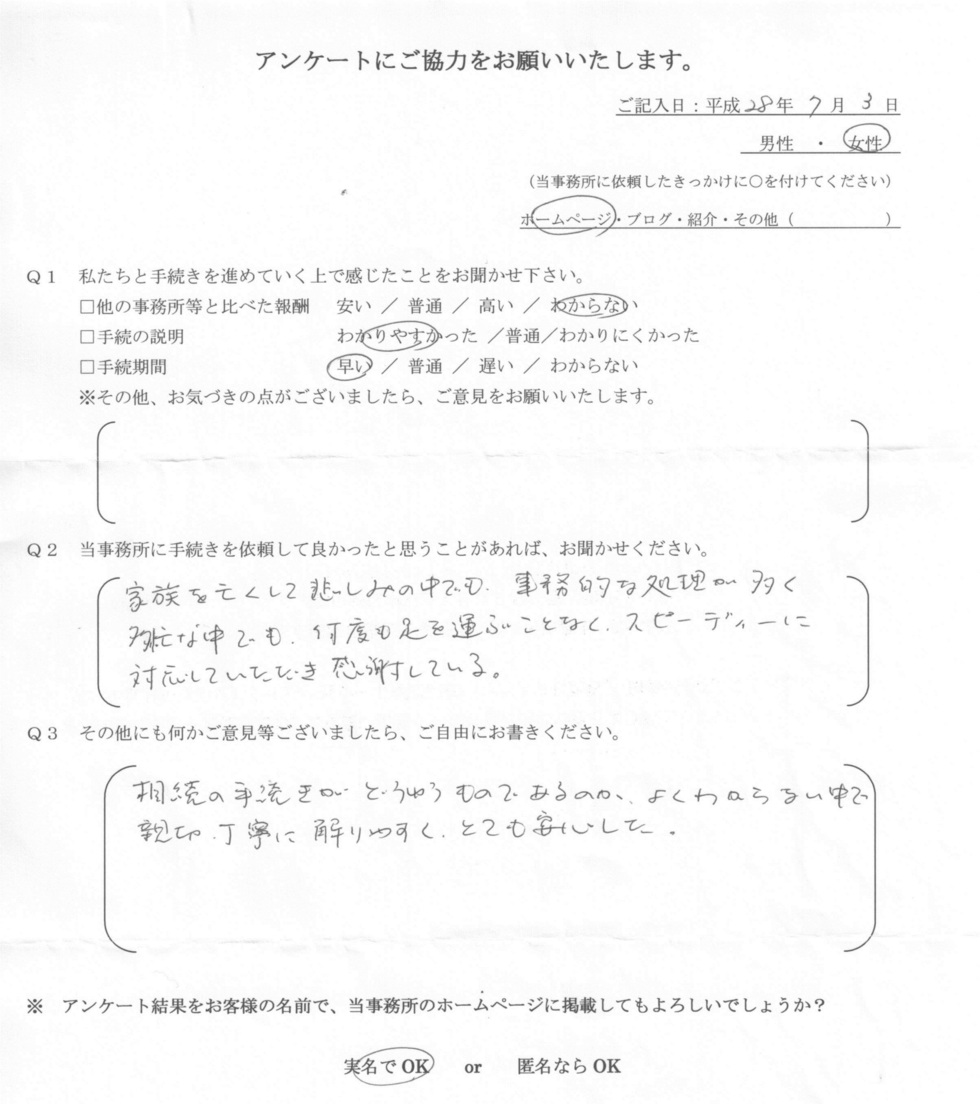 アンケートにご協力をお願いいたします。
ご記入日：平成28年 7月 3日
男性 ・ 女性
（当事務所に依頼したきっかけに○を付けてください）
ホームページ・ブログ・紹介・その他（　　　　　）
Q１ 私たちと手続きを進めていく上で感じたことをお聞かせ下さい。
□他の事務所等と比べた報酬 安い ／ 普通 ／ 高い ／ わからない
□手続の説明 わかりやすかった ／普通／わかりにくかった
□手続期間 早い ／ 普通 ／ 遅い ／ わからない
※その他、お気づきの点がございましたら、ご意見をお願いいたします。
Q２ 当事務所に手続きを依頼して良かったと思うことがあれば、お聞かせください。
家族を亡くして悲しみの中でも、事務的な処理が多く
多忙な中でも、何度も足を運ぶことなく、スピーディーに
対応していただき感謝している。
Q３ その他にも何かご意見等ございましたら、ご自由にお書きください。
相続の手続きがどうゆうものであるのか、よくわからない中で
親切、丁寧に解りやすく、とても安心した。
※ アンケート結果をお客様の名前で、当事務所のホームページに掲載してもよろしいでしょうか？
実名でOK or 匿名ならOK